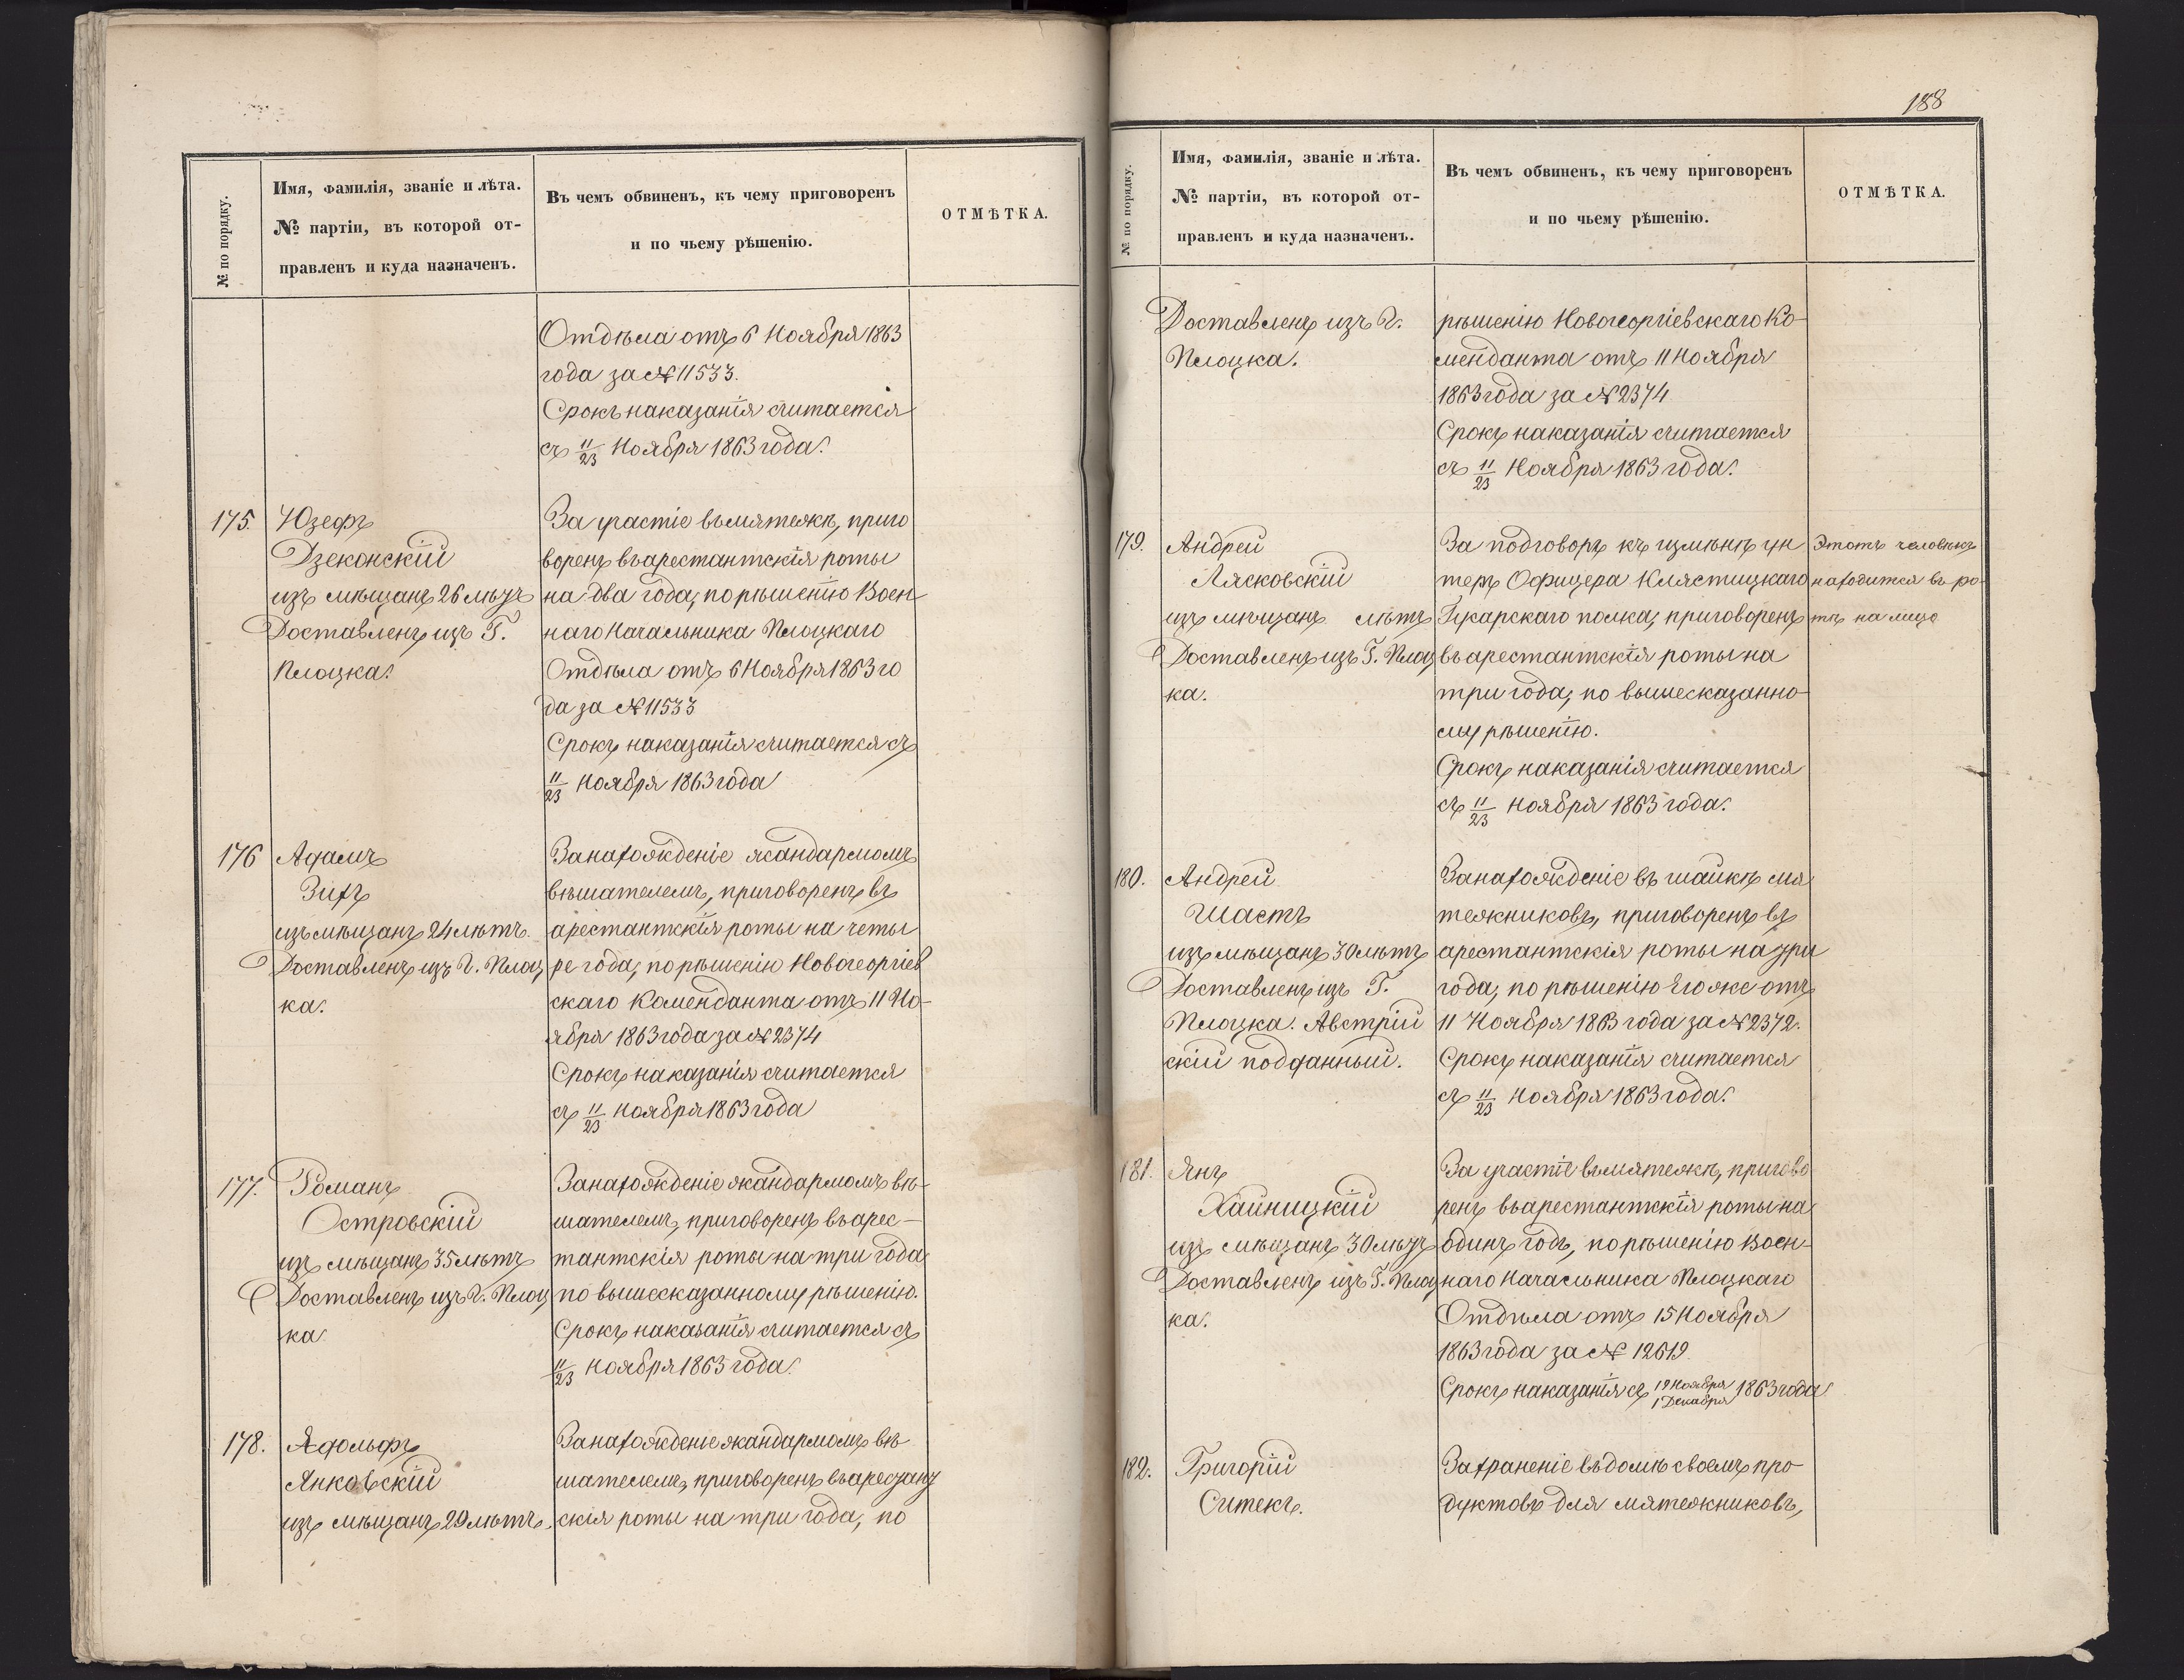 № по порядку.
Имя, фамилія, званіе и лѣта.
№ партіи, въ которой от-
правленъ и куда назначенъ.
Въ чемъ обвиненъ, къ чему приговоренъ
и по чьему рѣшенію.
ОТМѢТКА.
Отдѣла отъ 6 Ноября 1863
года за № 11533.
Срокъ наказанія считается
съ 11/23 Ноября 1863 года.
175.
Юзефъ
Дзеконскій
изъ мѣщанъ 26 лѣтъ
Доставленъ изъ Г.
Плоцка.
За участіе въ мятежѣ, приго
воренъ въ арестантскія роты
на два года, по рѣшенію Воен
наго Начальника Плоцкаго
Отдѣла отъ 6 Ноября 1863 го
да за № 11533
Срокъ наказанія считается съ
11/23 Ноября 1863 года
176
Адамъ
Зихъ
изъ мѣщанъ 24 лѣтъ.
Доставленъ изъ Г. Плоц
ка.
За нахожденіе жандармомъ
вѣшателемъ, приговоренъ въ
арестантскія роты на четы
ре года, по рѣшенію Новогеоргіев
скаго Коменданта отъ 11 Но-
ября 1863 года за № 2374
Срокъ наказанія считается
съ 11/23 Ноября 1863 года
177.
Романъ
Островскій
изъ мѣщанъ 35 лѣтъ
Доставленъ изъ Г. Плоц
ка
За нахожденіе жандармомъ вѣ-
шателемъ, приговоренъ въ арес-
тантскія роты на три года
по вышесказанному рѣшенію.
Срокъ наказанія считается съ
11/23 Ноября 1863 года.
178.
Адольфъ
Янковскій
изъ мѣщанъ 29 лѣтъ.
За нахожденіе жандармомъ вѣ
шателемъ, приговоренъ въ арестант
скія роты на три года, по
188
№ по порядку.
Имя, фамилія, званіе и лѣта.
№ партіи, въ которой от-
правленъ и куда назначенъ.
Въ чемъ обвиненъ, къ чему приговоренъ
и по чьему рѣшенію.
ОТМѢТКА.
Доставленъ изъ Г.
Плоцка.
рѣшенію Новогеоргіевскаго Ко-
менданта отъ 11 Ноября
1863 года за № 2374
Срокъ наказанія считается
съ 11/23 Ноября 1863 года.
179.
Андрей
Лясковскій
изъ мѣщанъ лѣтъ
Доставленъ изъ Г. Плоц
ка.
За подговоръ къ измѣнѣ ун
теръ Офицера Клястицкаго
Гусарскаго полка, приговоренъ
въ арестантскія роты на
три года, по вышесказанно-
му рѣшенію.
Срокъ наказанія считается
съ 11/23 Ноября 1863 года.
Этотъ человѣкъ
находится въ ро-
тѣ на лицо
180.
Андрей
Шастъ
изъ мѣщанъ 30 лѣтъ
Доставленъ изъ Г.
Плоцка. Австрій
скій подданный.
За нахожденіе въ шайкѣ мя
тежниковъ, приговоренъ въ
арестантскія роты на три
года, по рѣшенію Его же отъ
11 Ноября 1863 года за № 2372.
Срокъ наказанія считается
съ 11/23 Ноября 1863 года.
181.
Янъ
Хайницкій
изъ мѣщанъ 30 лѣтъ
Доставленъ изъ Г. Плоц
ка.
За участіе въ мятежѣ, пригово
ренъ въ арестантскія роты на
одинъ годъ, по рѣшенію Воен-
наго Начальника Плоцкаго
Отдѣла отъ 15 Ноября
1863 года за № 12619.
Срокъ наказанія съ 19 Ноября/1 Декабря 1863 года
182.
Григорій
Ситекъ.
За храненіе въ домѣ своемъ про
дуктовъ для мятежниковъ,